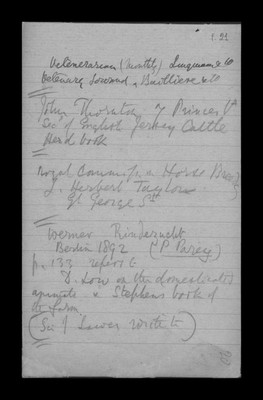 1.21
Veterinarian (monthly) Longman & Co
Veterinary Journal, Baillière & Co
John Thornton 7 Princes St
Sec of English Jersey Cattle
Herd book
Royal Commission Horse Breeding
J. Herbert Taylor
St George St
Werner Rinderzucht
Berlin 1892 (P. Parey)
p. 133 refers to
D. Low on the domesticated
animals & Stephens book of
the Farm
(See if Lower wrote to)